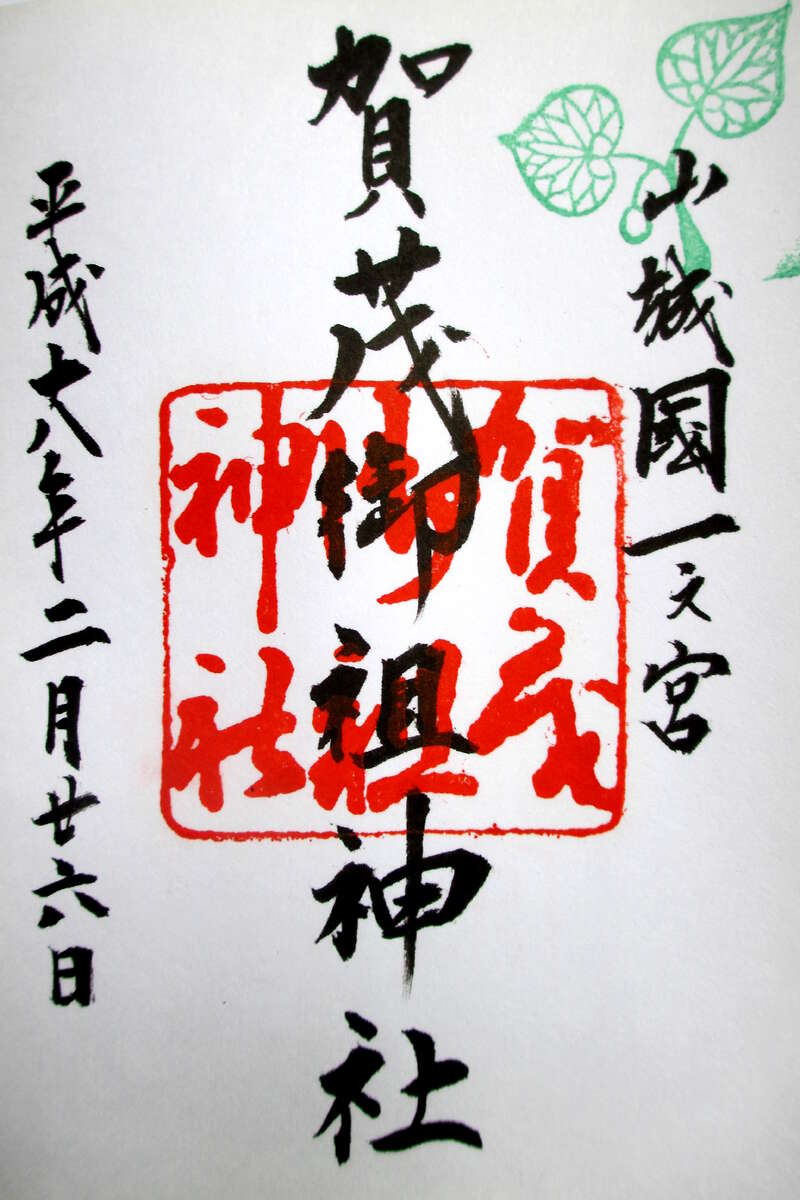 山城國一之宮
賀茂御祖神社
賀茂
御祖
神社
平成十八年二月廿六日